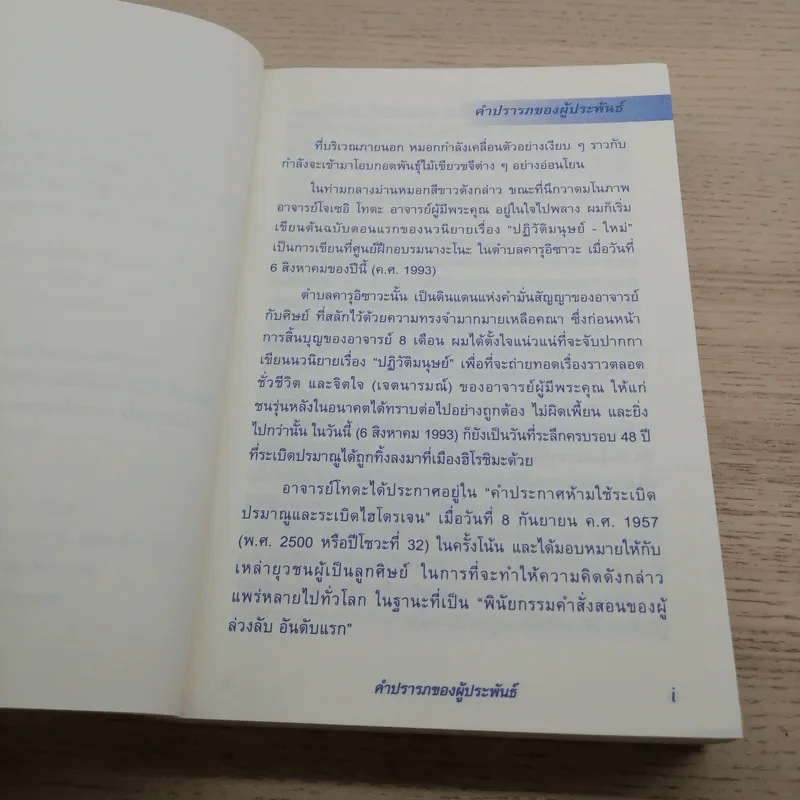 คำปรารภของผู้ประพันธ์
ที่บริเวณภายนอก หมอกกำลังเคลื่อนตัวอย่างเงียบ ๆ ราวกับ
กำลังจะเข้ามาโอบกอดพันธุ์ไม้เขียวขจีต่าง ๆ อย่างอ่อนโยน
ในท่ามกลางม่านหมอกสีขาวดังกล่าว ขณะที่นึกวาดมโนภาพ
อาจารย์โจเซอิ โทดะ อาจารย์ผู้มีพระคุณ อยู่ในใจไปพลาง ผมก็เริ่ม
เขียนต้นฉบับตอนแรกของนวนิยายเรื่อง "ปฏิวัติมนุษย์ - ใหม่"
เป็นการเขียนที่ศูนย์ฝึกอบรมนางะโนะ ในตำบลคารุอิซาวะ เมื่อวันที่
6 สิงหาคมของปีนี้ (ค.ศ. 1993)
ตำบลคารุอิซาวะนั้น เป็นดินแดนแห่งคำมั่นสัญญาของอาจารย์
กับศิษย์ ที่สลักไว้ด้วยความทรงจำมากมายเหลือคณา ซึ่งก่อนหน้า
การสิ้นบุญของอาจารย์ 8 เดือน ผมได้ตั้งใจแน่วแน่ที่จะจับปากกา
เขียนนวนิยายเรื่อง "ปฏิวัติมนุษย์" เพื่อที่จะถ่ายทอดเรื่องราวตลอด
ชั่วชีวิต และจิตใจ (เจตนารมณ์) ของอาจารย์ผู้มีพระคุณ ให้แก่
ชนรุ่นหลังในอนาคตได้ทราบต่อไปอย่างถูกต้อง ไม่ผิดเพี้ยน และยิ่ง
ไปกว่านั้น ในวันนี้ (6 สิงหาคม 1993) ก็ยังเป็นวันที่ระลึกครบรอบ 48 ปี
ที่ระเบิดปรมาณูได้ถูกทิ้งลงมาที่เมืองฮิโรชิมะด้วย
อาจารย์โทดะได้ประกาศอยู่ใน "คำประกาศห้ามใช้ระเบิด
ปรมาณูและระเบิดไฮโดรเจน" เมื่อวันที่ 8 กันยายน ค.ศ. 1957
(พ.ศ. 2500 หรือปีโชวะที่ 32) ในครั้งโน้น และได้มอบหมายให้กับ
เหล่ายุวชนผู้เป็นลูกศิษย์ ในการที่จะทำให้ความคิดดังกล่าว
แพร่หลายไปทั่วโลก ในฐานะที่เป็น "พินัยกรรมคำสั่งสอนของผู้
ล่วงลับ อันดับแรก"
คำปรารภของผู้ประพันธ์
i